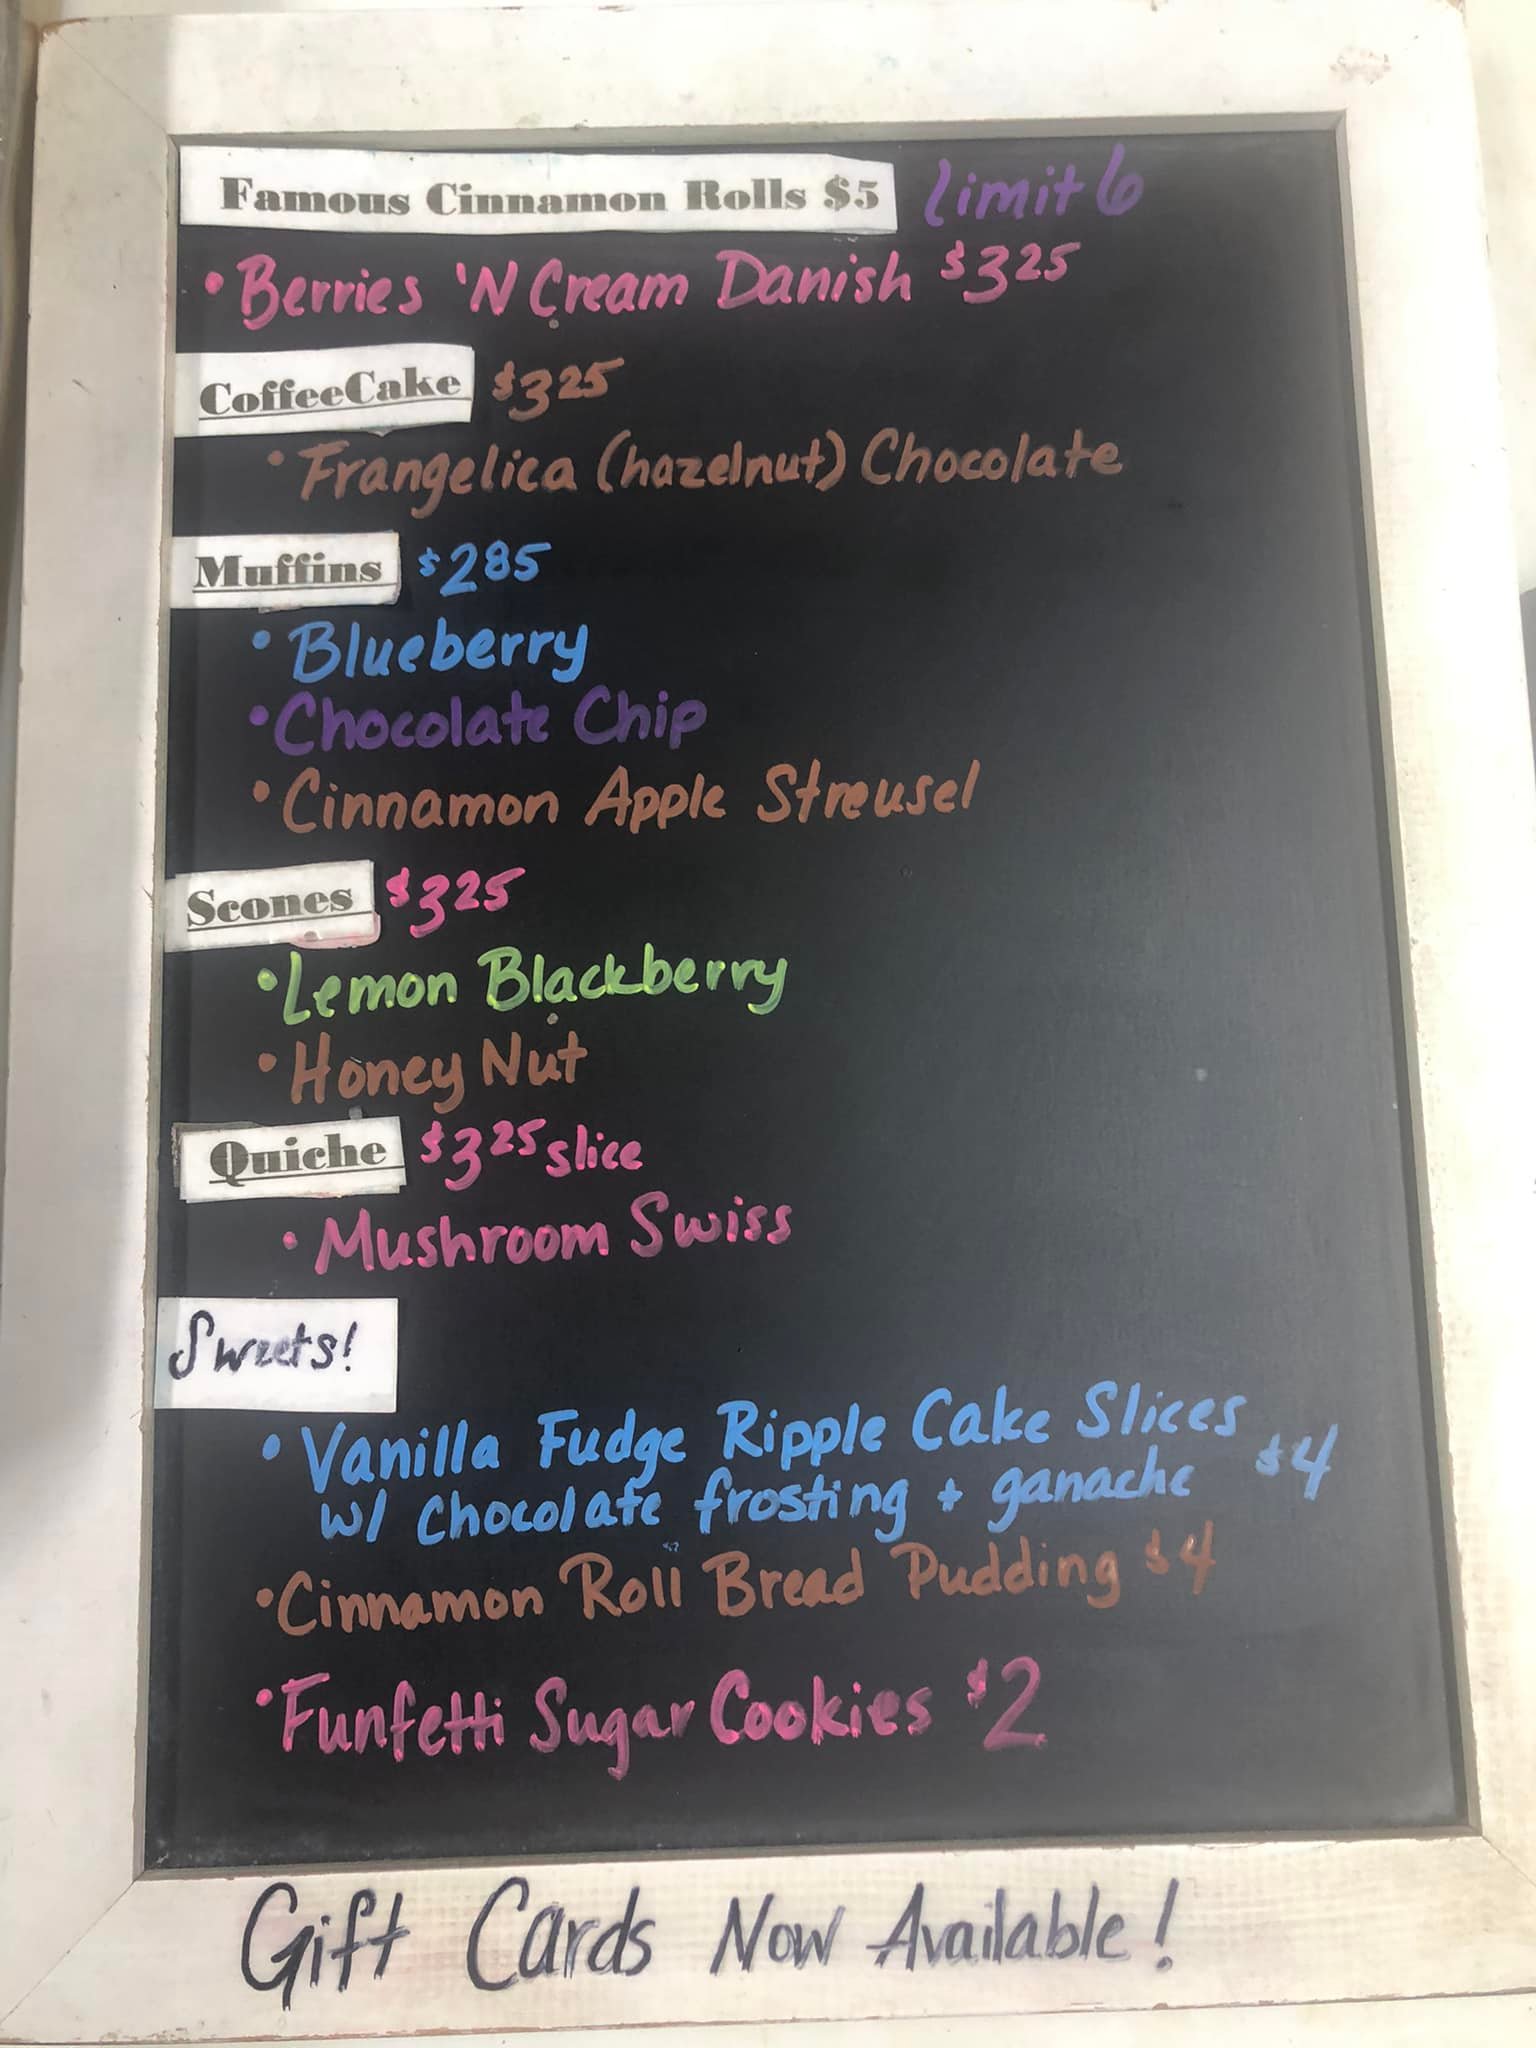 Famous Cinnamon Rolls $5 Limit 6
• Berries 'N Cream Danish $3 25
CoffeeCake $3 25
• Frangelica (hazelnut) Chocolate
Muffins $2 85
• Blueberry
• Chocolate Chip
• Cinnamon Apple Streusel
Scones $3 25
• Lemon Blackberry
• Honey Nut
Quiche $3 25 slice
• Mushroom Swiss
Sweets!
• Vanilla Fudge Ripple Cake Slices
w/ Chocolate frosting + ganache $4
• Cinnamon Roll Bread Pudding $4
• Funfetti Sugar Cookies $2
Gift Cards Now Available!